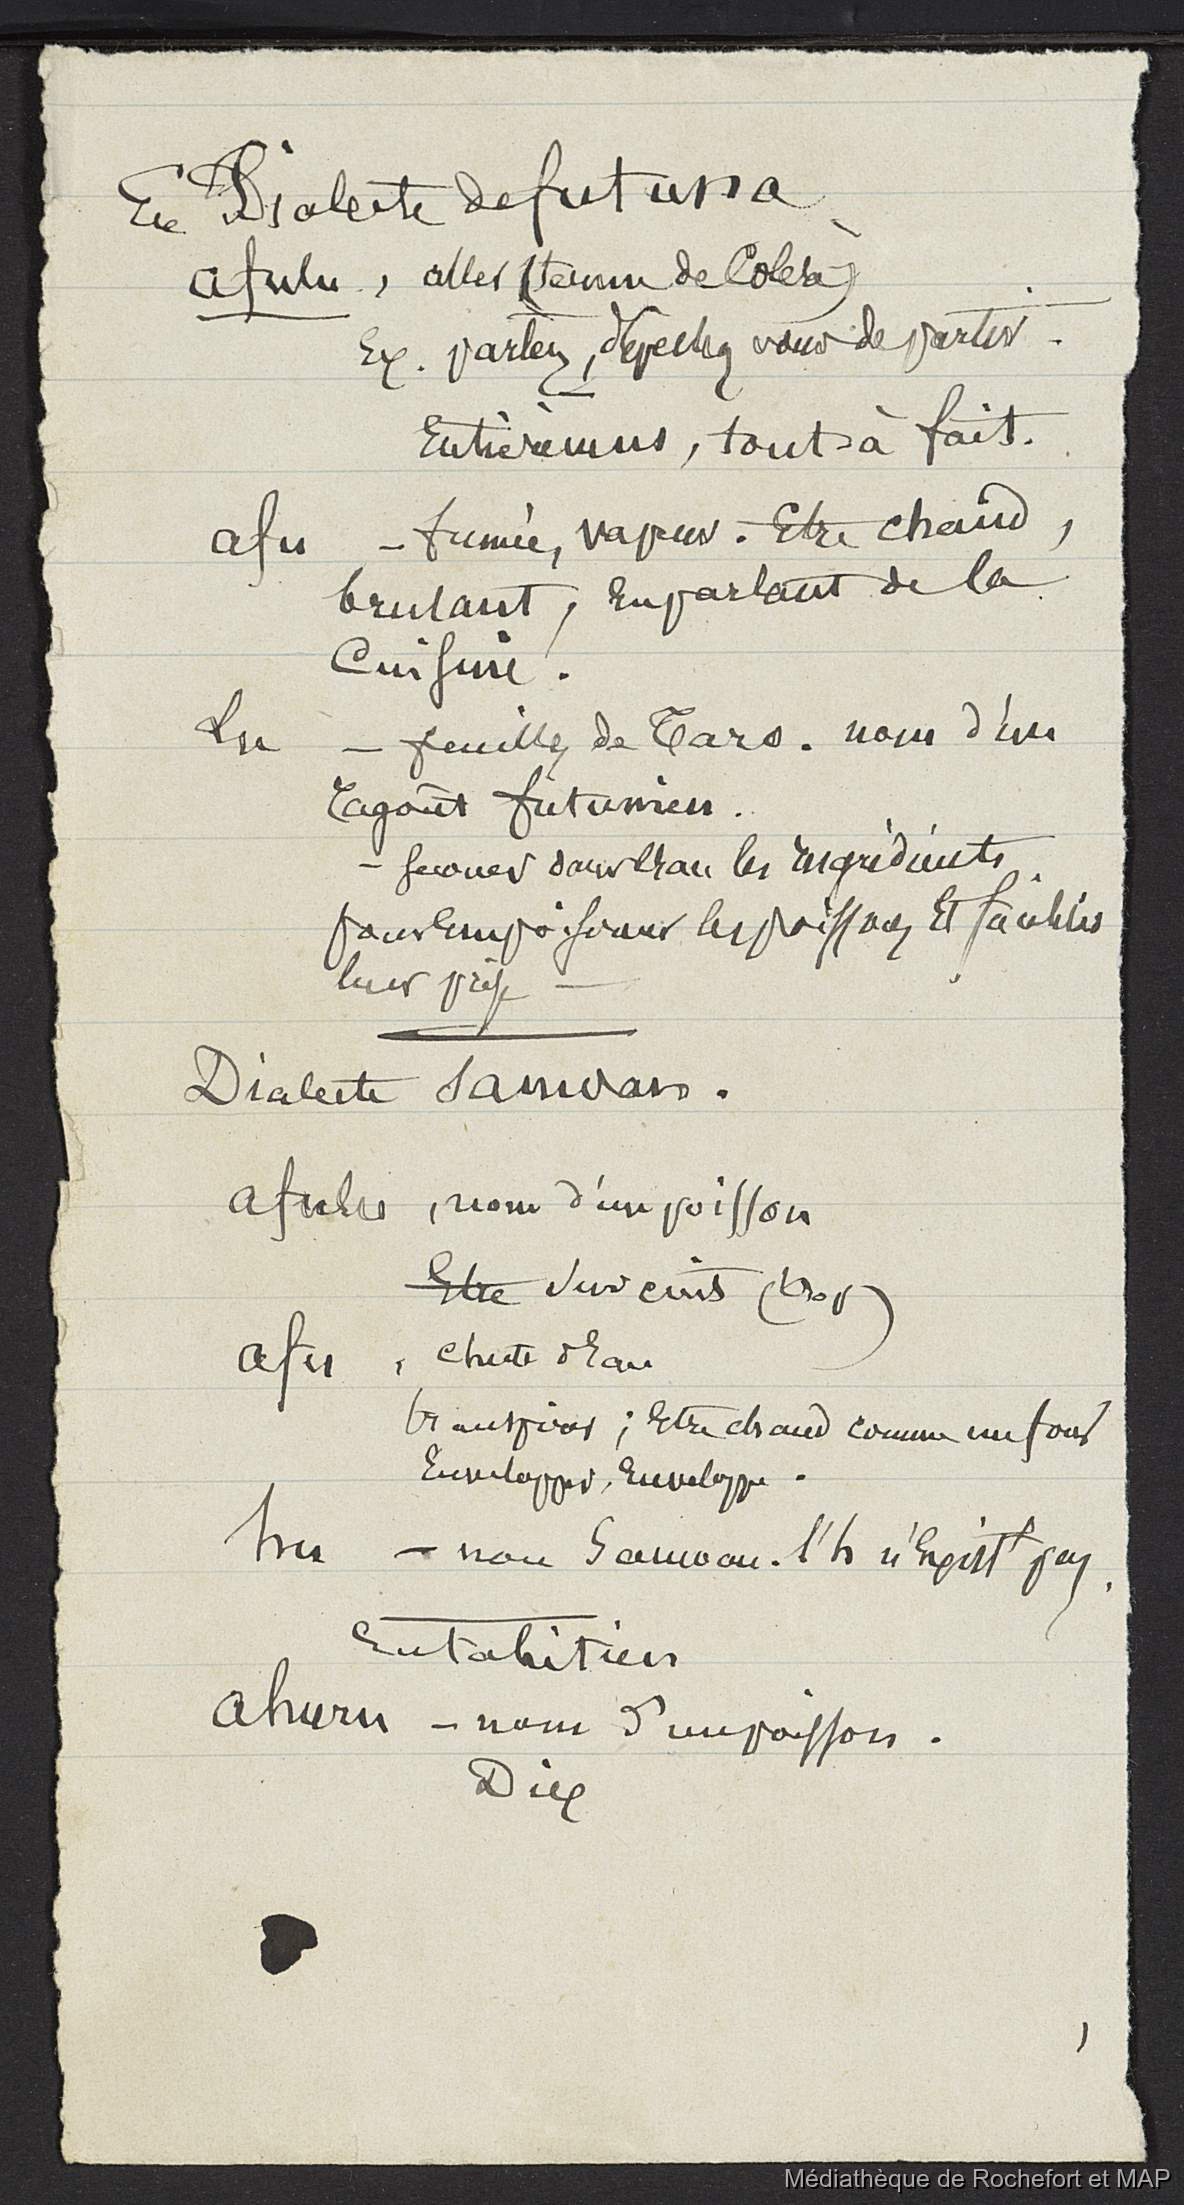 En Dialecte de futuna
afulu, aller (terme de Colère)
Ex. partez, dépechez vous de partir.
Entièremens, tout à fait.
afu – fumée, vapeur. Etre chaud,
brulant, en parlant de la
Cuisine.
Lu – feuilles de Taro. nom d'un
ragoût futunien.
– secouer dans l'eau les ingrédients
pour empoisonner les poissons Et faciliter
leur prise –
Dialecte Samoan.
afulu, nom d'un poisson
Etre sur cuit (trop)
afu, chute d'Eau
transpirer; Etre chaud comme un four
Envelopper, Enveloppe.
hu – non Samoan. l'h n'Existe pas.
En tahitien
ahuru – nom d'un poisson.
Dix
Médiathèque de Rochefort et MAP